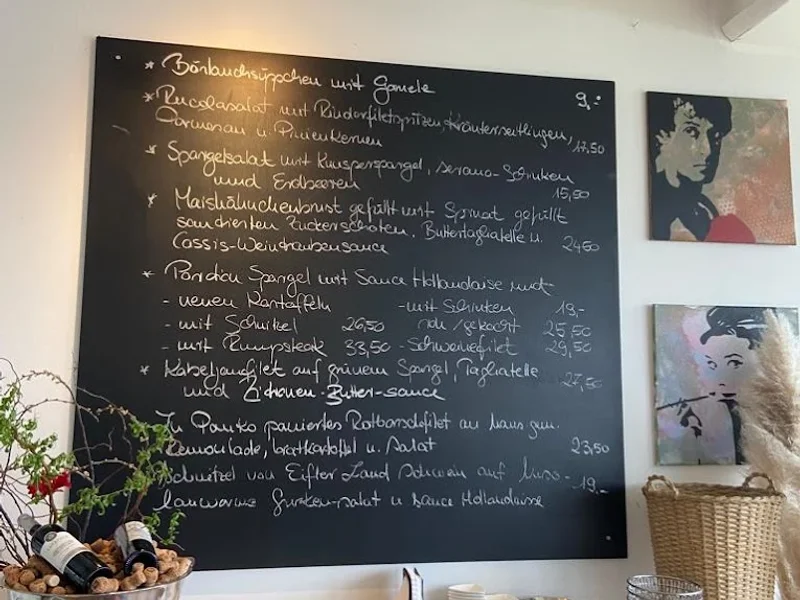 * Bärlauchsüppchen mit Garnele 9,-
* Rucolasalat mit Rinderfiletspitzen, Kräuterseitlingen,
Parmesan u. Pinienkernen 17,50
* Spargelsalat mit Knusperspargel, Serano-Schinken
und Erdbeeren 15,50
* Maishähnchenbrust gefüllt mit Spinat gefüllt
sandierten Zuckerschoten, Buttertagliatelle u.
Cassis-Weintraubensauce 24,50
* Portion Spargel mit Sauce Hollandaise und
- neuen Kartoffeln - mit Schinken 19,-
- mit Schnitzel 26,50 roh/gekocht 25,50
- mit Rumpsteak 33,50 - Schweinefilet 29,50
* Kabeljaufilet auf grünem Spargel, Tagliatelle 27,50
und Zitronen-Butter-sauce
In Panko paniertes Rotbarschfilet an hausgem.
Remoulade, bratkartoffel u. Salat 23,50
Schnitzel von Eifler Land schwein auf 19,-
lauwarme Gurken-salat u sauce Hollandaise